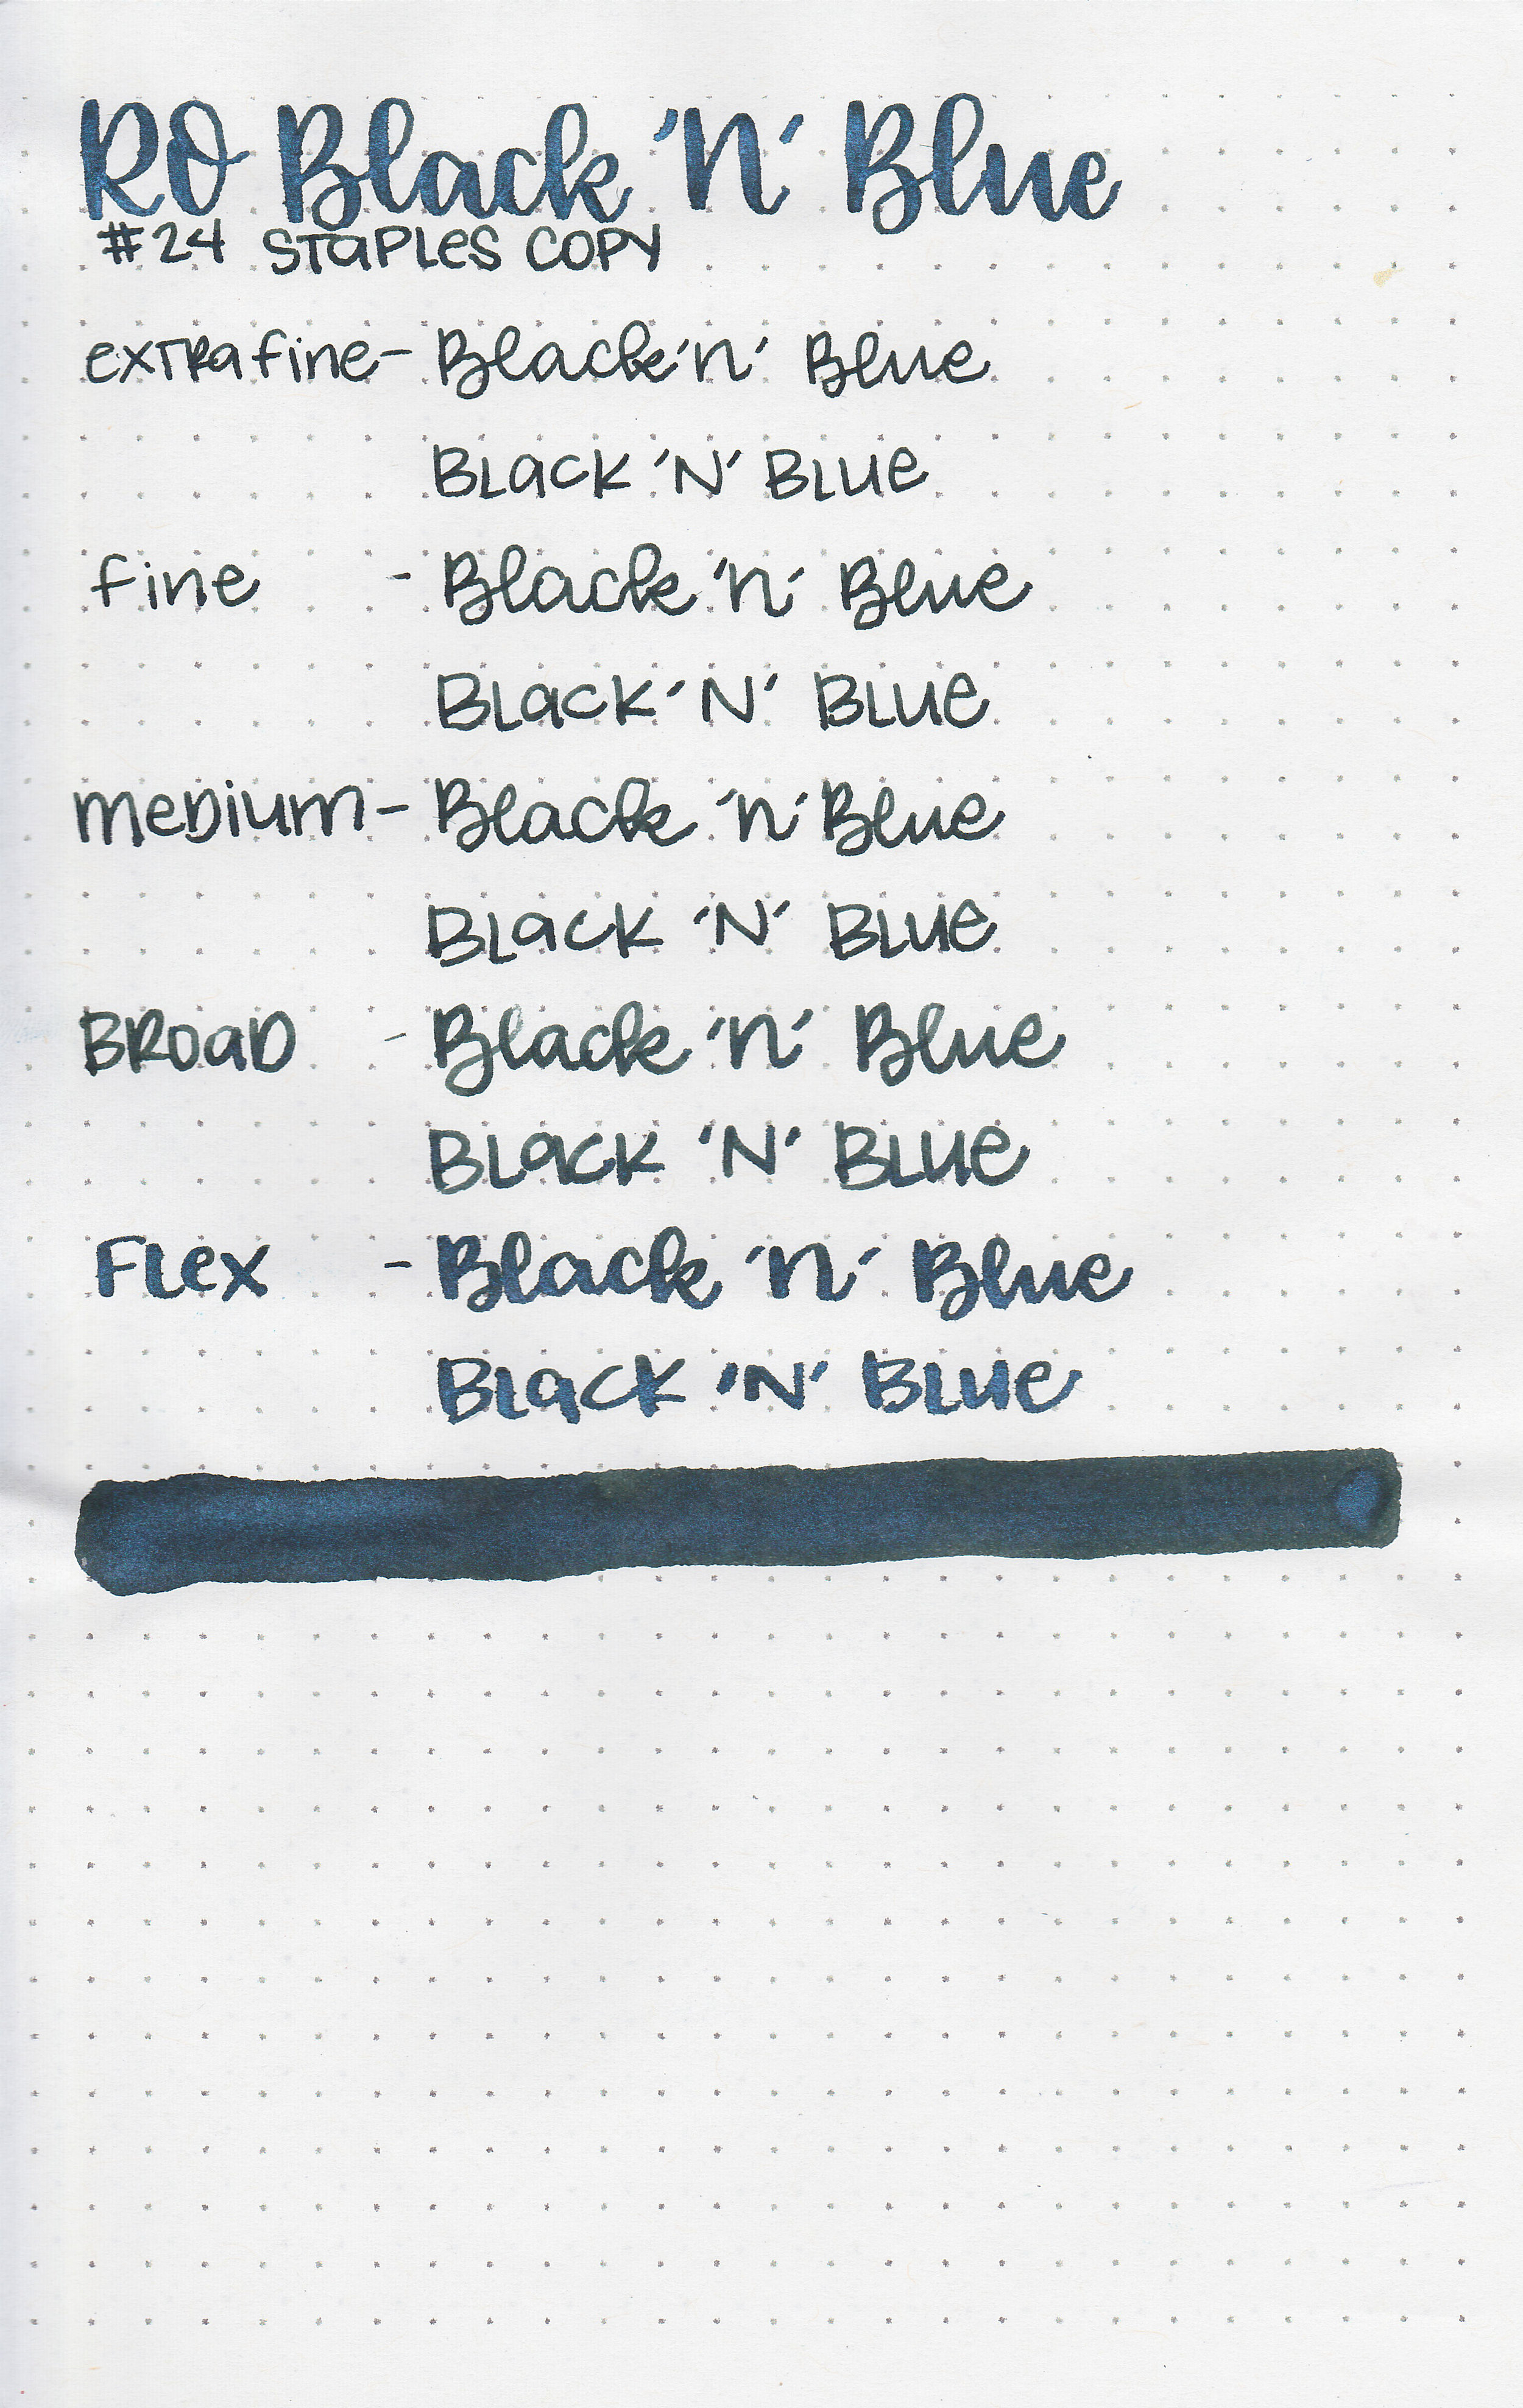 RO Black 'N' Blue
#24 STaPLeS COPY
exTRa fine - Black 'n' Blue
BLacK 'N' BLUe
fine - Black 'n' Blue
BLacK 'N' BLUe
meDium - Black 'n' Blue
BLacK 'N' BLUe
BRoaD - Black 'n' Blue
BLacK 'N' BLUe
FLex - Black 'n' Blue
BLacK 'N' BLUe